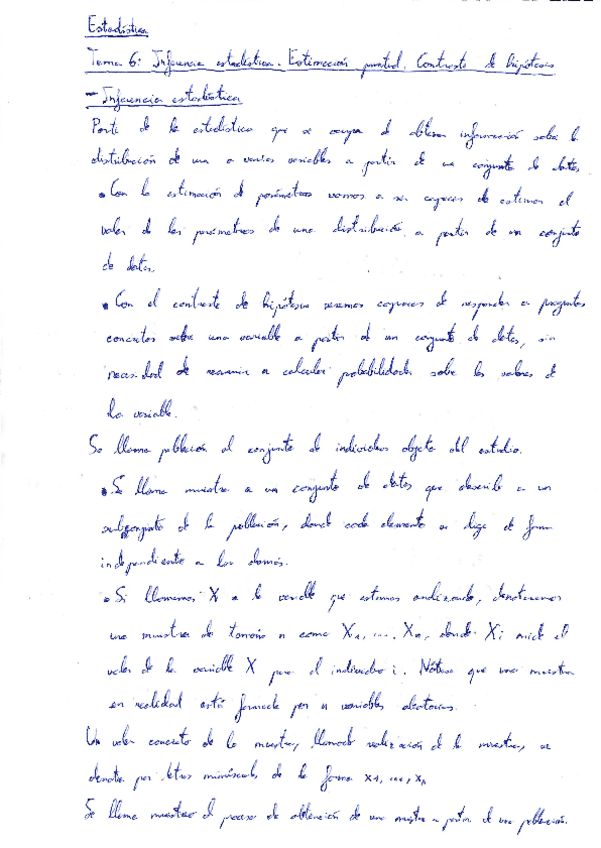 Estadística
Tema 6: Inferencia estadística. Estimación puntual. Contraste de hipótesis
- Inferencia estadística
Parte de la estadística que se ocupa de obtener información sobre la
distribución de una o varias variables a partir de un conjunto de datos.
• Con la estimación de parámetros vamos a ser capaces de estimar el
valor de los parámetros de una distribución a partir de un conjunto
de datos.
• Con el contraste de hipótesis seremos capaces de responder a preguntas
concretas sobre una variable a partir de un conjunto de datos, sin
necesidad de recurrir a calcular probabilidades sobre los valores de
la variable.
Se llama población al conjunto de individuos objeto del estudio.
• Se llama muestra a un conjunto de datos que describe a un
subconjunto de la población, donde cada elemento se elige de forma
independiente a los demás.
• Si llamamos X a la variable que estamos analizando, denotaremos
una muestra de tamaño n como X1, ... Xn, donde Xi mide el
valor de la variable X para el individuo i. Nótese que una muestra
en realidad está formada por n variables aleatorias.
Un valor concreto de la muestra, llamado realización de la muestra, se
denota por letras minúsculas, de la forma x1, ..., xn
Se llama muestreo el proceso de obtención de una muestra a partir de una población.